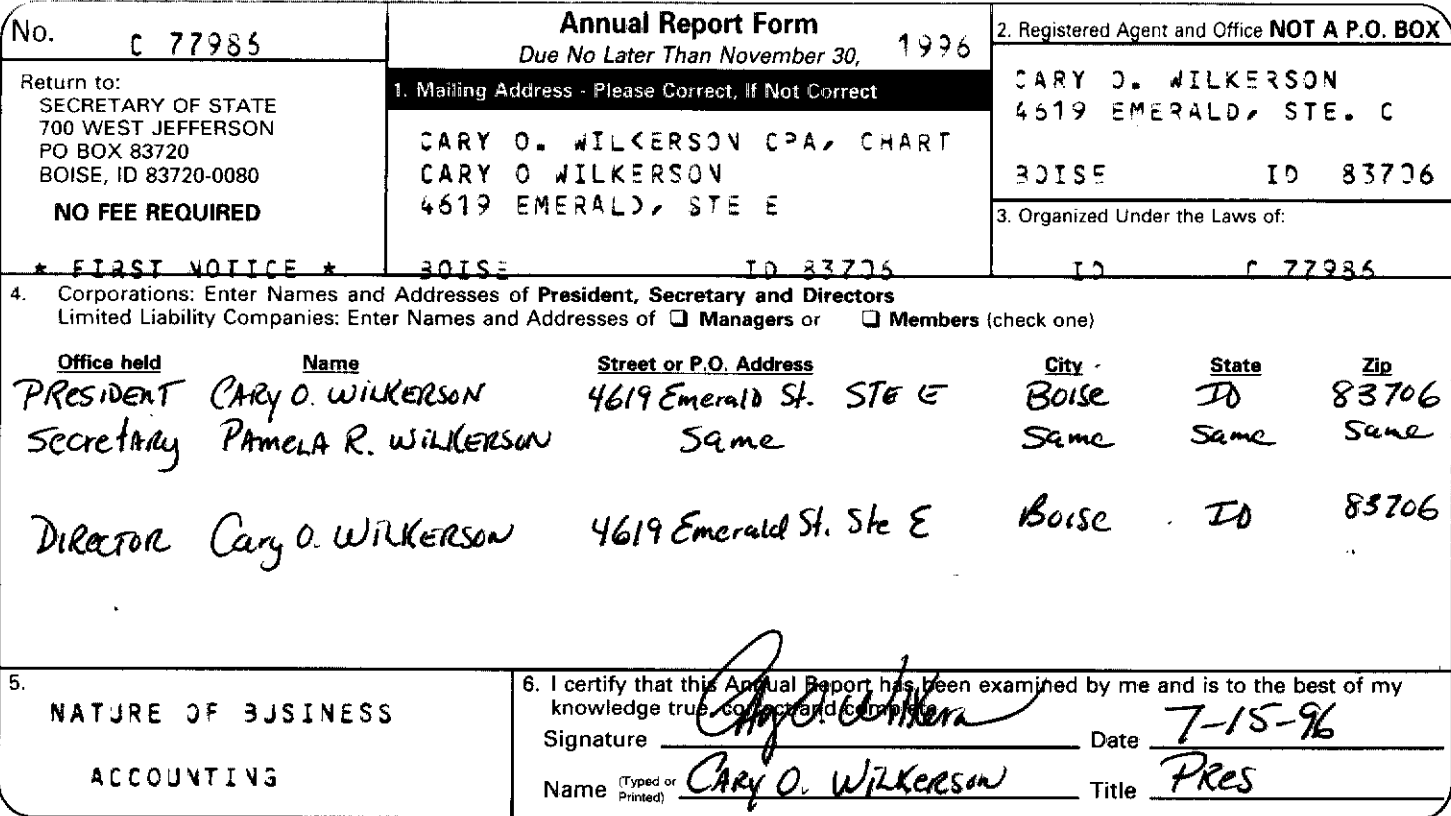 No. C 77986
Return to:
SECRETARY OF STATE
700 WEST JEFFERSON
PO BOX 83720
BOISE, ID 83720-0080
NO FEE REQUIRED
* FIRST NOTICE *
Annual Report Form
Due No Later Than November 30, 1996
1. Mailing Address - Please Correct, If Not Correct
CARY O. WILKERSON CPA, CHART
CARY O WILKERSON
4619 EMERALD, STE E
BOISE ID 83706
2. Registered Agent and Office NOT A P.O. BOX
CARY O. WILKERSON
4619 EMERALD, STE. C
BOISE ID 83706
3. Organized Under the Laws of:
ID C 77986
4. Corporations: Enter Names and Addresses of President, Secretary and Directors
Limited Liability Companies: Enter Names and Addresses of ❑ Managers or ❑ Members (check one)
Office held Name Street or P.O. Address City State Zip
PRESIDENT CARY O. WILKERSON 4619 Emerald St. STE E Boise ID 83706
Secretary PAMELA R. WILKERSON Same Same Same Same
DIRECTOR Cary O. WILKERSON 4619 Emerald St. Ste E Boise ID 83706
5.
NATURE OF BUSINESS
ACCOUNTING
6. I certify that this Annual Report has been examined by me and is to the best of my
knowledge true, correct and complete.
Signature Cary O Wilkerson Date 7-15-96
Name (Typed or Printed) CARY O. WILKERSON Title PRES